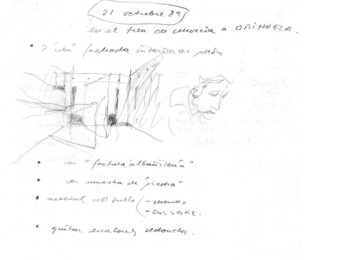 21 octubre 89
en el tren de murcia a ORIHUELA.
• ver fachada interior de piedra
• ver "factura albañilería"
• ver muestra de "piedra"
• material del suelo (- marmol
• quitar escalones redondos.